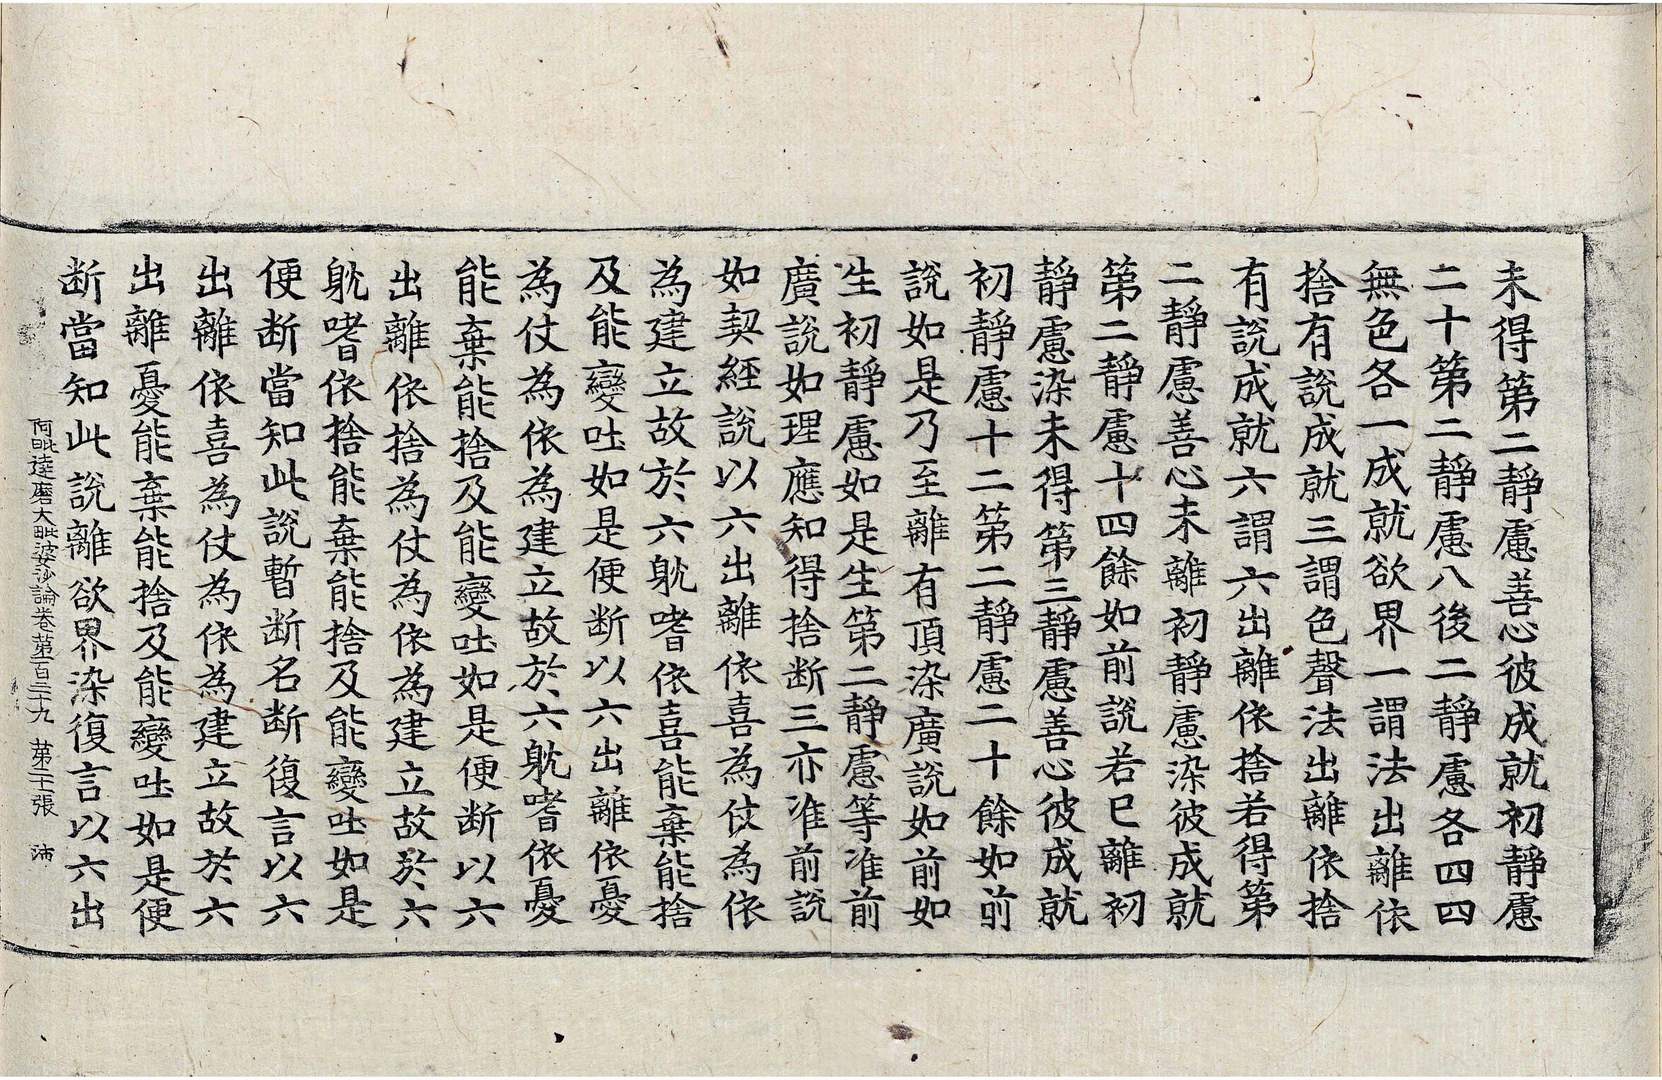 未得第二靜慮善心彼成就初靜慮
二十第二靜慮八後二靜慮各四四
無色各一成就欲界一謂法出離依
捨有說成就三謂色聲法出離依捨
有說成就六謂六出離依捨若得第
二靜慮善心未離初靜慮染彼成就
第二靜慮十四餘如前說若已離初
靜慮染未得第三靜慮善心彼成就
初靜慮十二第二靜慮二十餘如前
說如是乃至離有頂染廣說如前如
生初靜慮如是生第二靜慮等准前
廣說如理應知得捨断三亦准前說
如契經說以六出離依喜為仗為依
為建立故於六躭嗜依喜能棄能捨
及能變吐如是便断以六出離依憂
為仗為依為建立故於六躭嗜依憂
能棄能捨及能變吐如是便断以六
出離依捨為仗為依為建立故於六
躭嗜依捨能棄能捨及能變吐如是
便断當知此說暫断名断復言以六
出離依喜為仗為依為建立故於六
出離憂能棄能捨及能變吐如是便
断當知此說離欲界染復言以六出
阿毗達磨大毗婆沙論卷苐百三十九　苐二十張　沛